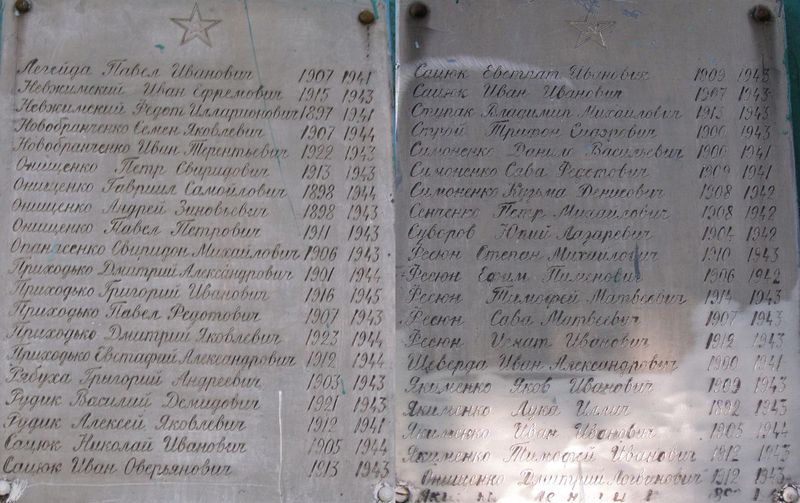 Легейда Павел Иванович 1907 1941
Невжимский Иван Ефремович 1915 1943
Невжимский Федот Илларионович 1897 1941
Новобранченко Семен Яковлевич 1907 1944
Новобранченко Иван Терентьевич 1922 1943
Онищенко Петр Свиридович 1913 1943
Онищенко Гавриил Самойлович 1898 1944
Онищенко Андрей Зиновьевич 1898 1943
Онищенко Павел Петрович 1911 1943
Опанасенко Свиридон Михайлович 1906 1943
Приходько Дмитрий Александрович 1901 1944
Приходько Григорий Иванович 1916 1945
Приходько Павел Федотович 1907 1943
Приходько Дмитрий Яковлевич 1923 1944
Приходько Евстафий Александрович 1912 1944
Рябуха Григорий Андреевич 1903 1943
Рудик Василий Демидович 1921 1943
Рудик Алексей Яковлевич 1912 1941
Сацюк Николай Иванович 1905 1944
Сацюк Иван Оверьянович 1913 1943
Сацюк Евстпат Иванович 1909 1943
Сацюк Иван Иванович 1907 1943
Ступак Владимир Михайлович 1913 1943
Строй Трифон 1900 1943
Симоненко Данило Васильевич 1900 1941
Симоненко Сава Феостович 1909 1941
Симоненко Кузьма Денисович 1908 1942
Сенченко Петр Михайлович 1908 1942
Суворов Юрий Лазаревич 1904 1942
Фесюн Степан Михайлович 1910 1943
Фесюн Ефим Пименович 1906 1942
Фесюн Тимофей Матвеевич 1914 1943
Фесюн Сава Матвеевич 1907 1943
Фесюн Игнат Иванович 1912 1943
Шеверда Иван Александрович 1900 1941
Якименко Яков Иванович 1909 1943
Якименко Лука Иллич 1892 1943
Якименко Иван Иванович 1905 1944
Якименко Тимофей Иванович 1912 1943
Онищенко Дмитрий Логвинович 1912 1943